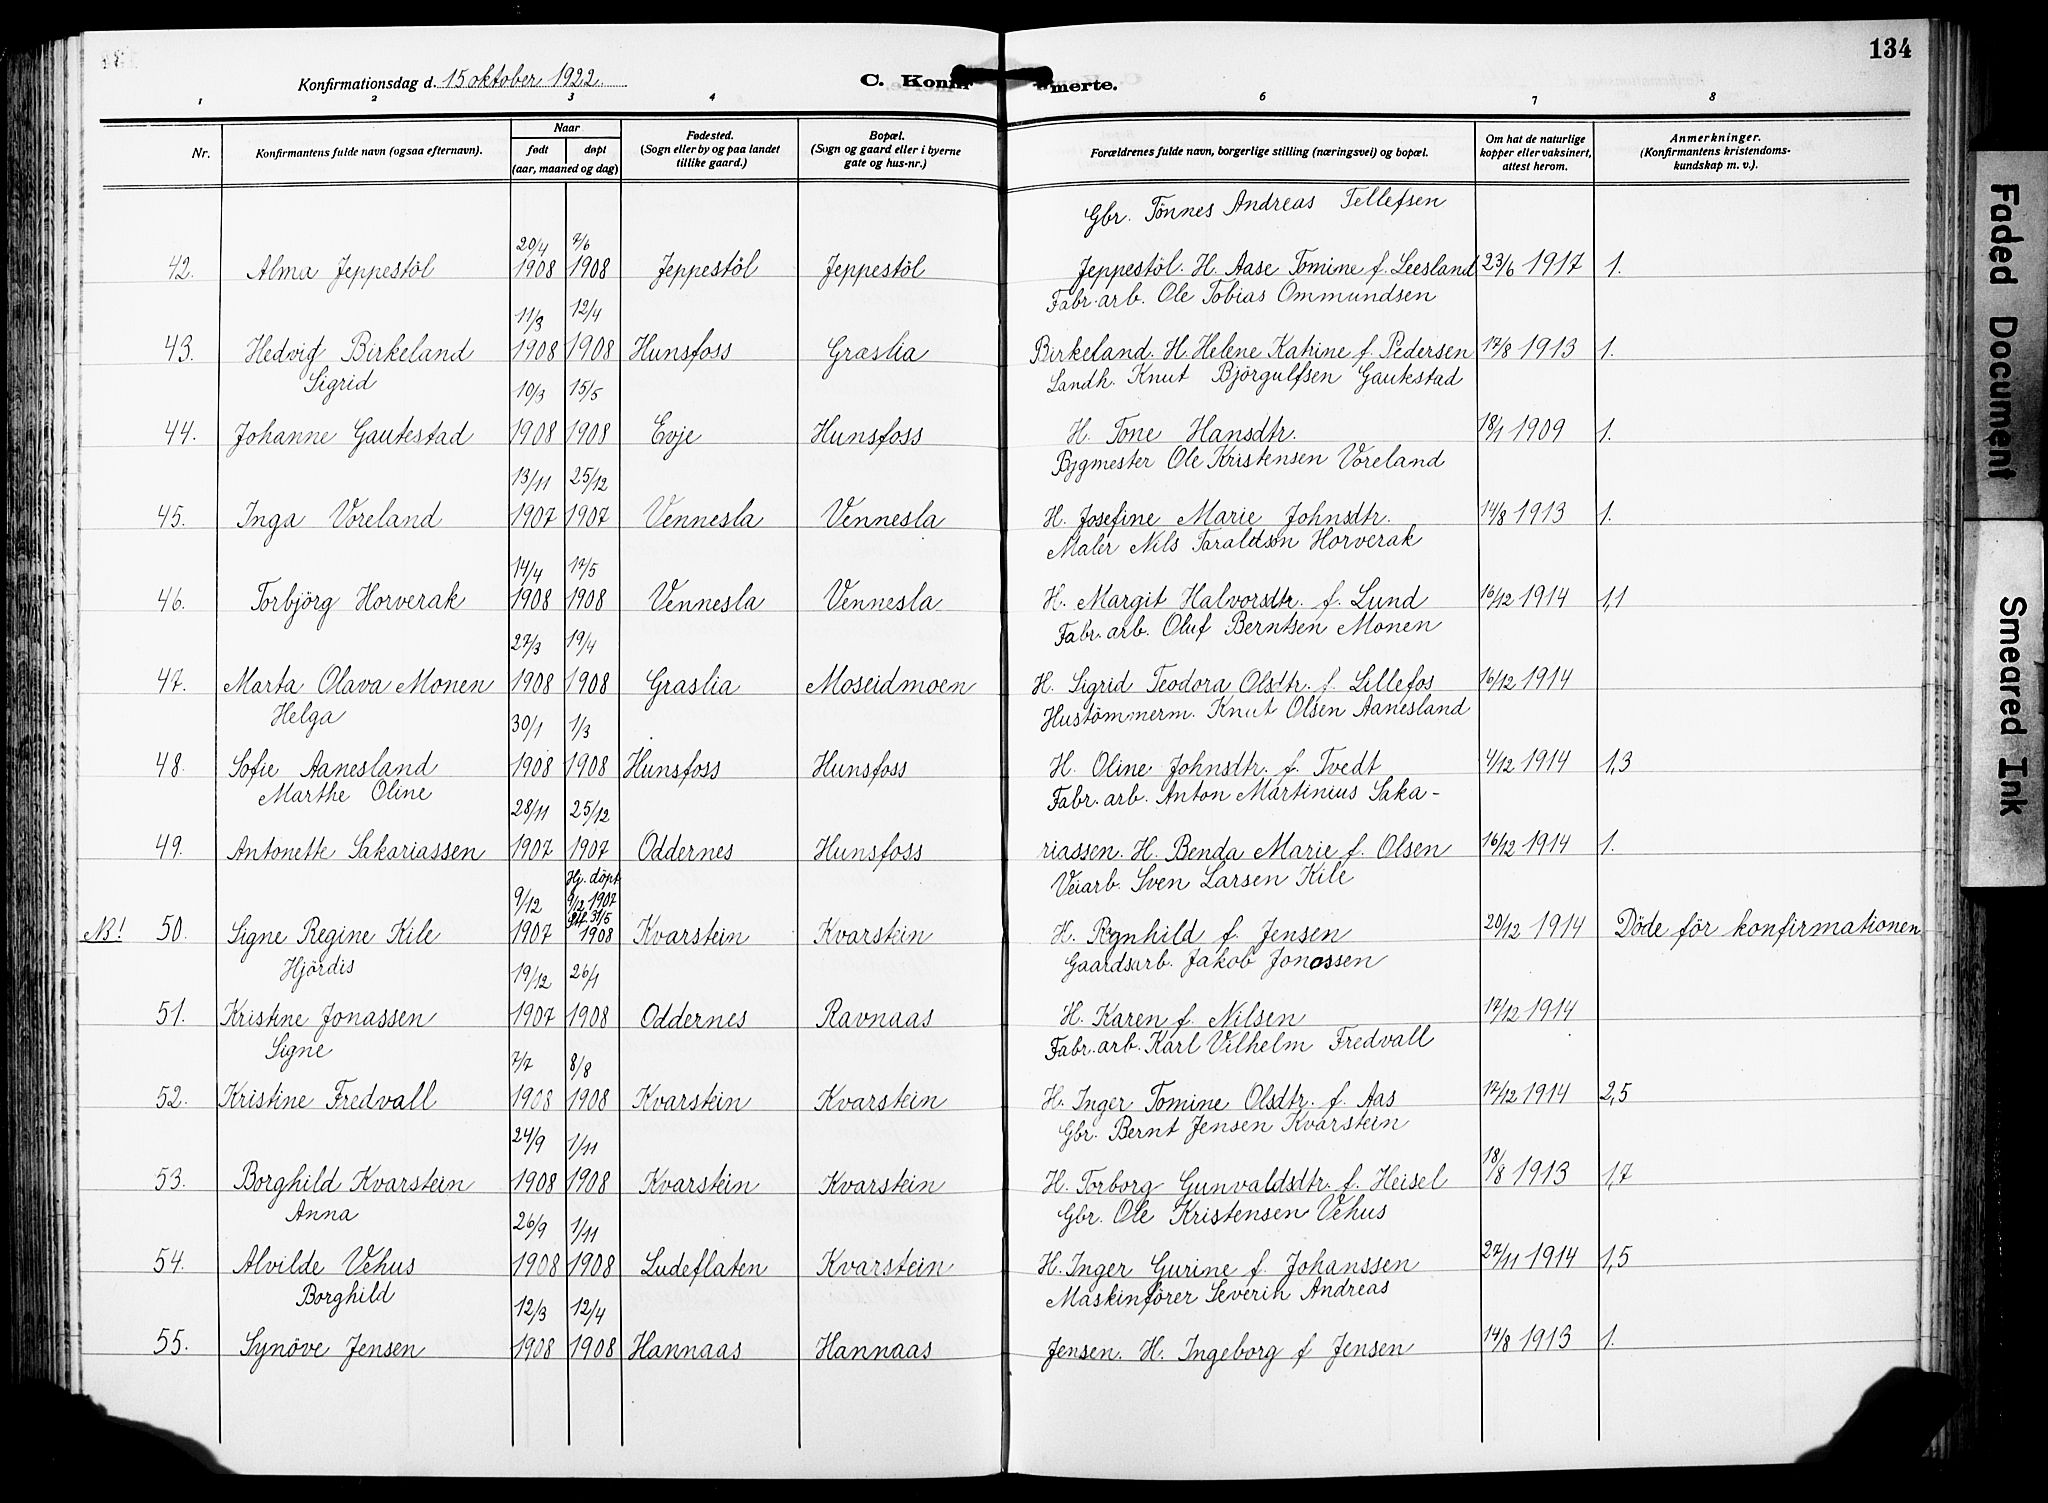 134
Konfirmationsdag d. 15 oktober 1922.
C. Konfirmerte.
1 2 3 4 5 6 7 8
Nr.
Konfirmantens fulde navn (ogsaa efternavn).
Naar
født døpt
(aar, maaned og dag)
Fødested.
(Sogn eller by og paa landet
tillike gaard.)
Bopæl.
(Sogn og gaard eller i byerne
gate og hus-nr.)
Forældrenes fulde navn, borgerlige stilling (næringsvei) og bopæl.
Om hat de naturlige
kopper eller vaksinert,
attest herom.
Anmerkninger.
(Konfirmantens kristendoms-
kundskap m. v.).
Gbr. Tönnes Andreas Tellefsen
20/4 7/6
42. Alma Jeppestöl 1908 1908 Jeppestöl Jeppestöl Jeppestöl. H. Aase Tomine f. Leesland 23/6 1917 1.
11/3 12/4 Fabr. arb. Ole Tobias Ommundsen
43. Hedvig Birkeland 1908 1908 Hunsfoss Graslia Birkeland. H. Helene Katrine f. Pedersen 17/8 1913 1.
Sigrid 10/3 15/5 Landh. Knut Björgulfsen Gautestad
44. Johanne Gautestad 1908 1908 Evje Hunsfoss H. Tone Hansdtr. 18/1 1909 1.
13/11 25/12 Bygmester Ole Kristensen Voreland
45. Inga Voreland 1907 1907 Vennesla Vennesla H. Josefine Marie Johnsdtr. 14/8 1913 1.
14/4 17/5 Maler Nils Taraldsen Horverak
46. Torbjörg Horverak 1908 1908 Vennesla Vennesla H. Margit Halvorsdtr. f. Lund 16/12 1914 1,1
27/3 19/4 Fabr. arb. Oluf Berntsen Monen
47. Marta Olava Monen 1908 1908 Graslia Moseidmoen H. Sigrid Teodora Olsdtr. f. Lillefos 16/12 1914
Helga 30/1 1/3 Hustömmerm. Knut Olsen Aanesland
48. Sofie Aanesland 1908 1908 Hunsfoss Hunsfoss H. Oline Johnsdtr. f. Tvedt 4/12 1914 1,3
Marthe Oline 28/11 25/12 Fabr. arb. Anton Martinius Saka-
49. Antonette Sakariassen 1907 1907 Oddernes Hunsfoss riassen. H. Benda Marie f. Olsen 16/12 1914 1.
9/12 Hj. döpt 9/12 1907 31/5 Veiarb. Sven Larsen Kile
NB! 50. Signe Regine Kile 1907 1908 Kvarstein Kvarstein H. Ragnhild f. Jensen 20/12 1914 Döde för konfirmationen
Hjördis 19/12 26/1 Gaardsarb. Jakob Jonassen
51. Kristine Jonassen 1907 1908 Oddernes Ravnaas H. Karen f. Nilsen 17/12 1914
Signe 7/7 8/8 Fabr. arb. Karl Vilhelm Fredvall
52. Kristine Fredvall 1908 1908 Kvarstein Kvarstein H. Inger Tomine Olsdtr. f. Aas 17/12 1914 2,5
24/9 1/11 Gbr. Bernt Jensen Kvarstein
53. Borghild Kvarstein 1908 1908 Kvarstein Kvarstein H. Torborg Gunvaldsdtr. f. Heisel 18/8 1913 1,7
Anna 26/9 1/11 Gbr. Ole Kristensen Vehus
54. Alvilde Vehus 1908 1908 Ludeflaten Kvarstein H. Inger Gurine f. Johanssen 27/11 1914 1,5
Borghild 12/3 12/4 Maskinförer Severin Andreas
55. Synöve Jensen 1908 1908 Hannaas Hannaas Jensen. H. Ingeborg f Jensen 14/8 1913 1.
Faded Document
Smeared Ink